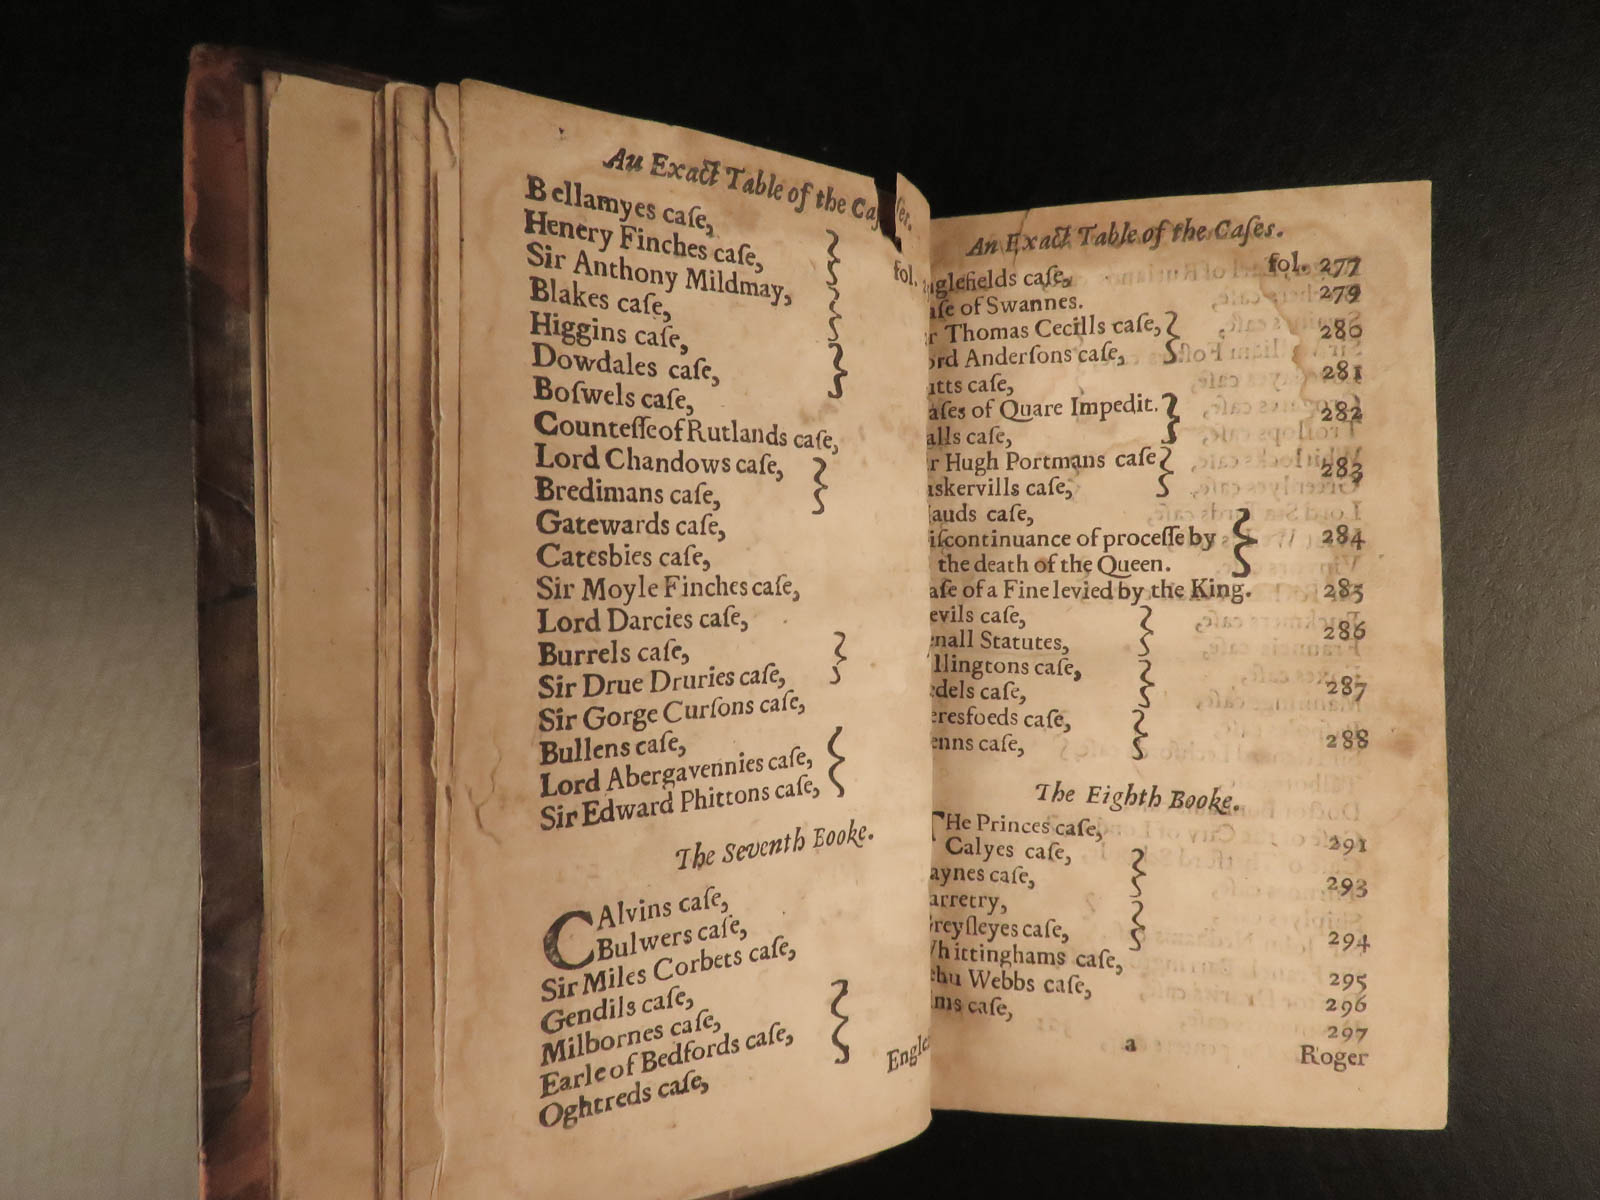 An Exact Table of the Caſes.
fol.
Bellamyes caſe,
Henery Finches caſe,
Sir Anthony Mildmay,
Blakes caſe,
Higgins caſe,
Dowdales caſe,
Boſwels caſe,
Counteſſe of Rutlands caſe,
Lord Chandows caſe,
Bredimans caſe,
Gatewards caſe,
Catesbies caſe,
Sir Moyle Finches caſe,
Lord Darcies caſe,
Burrels caſe,
Sir Drue Druries caſe,
Sir Gorge Curſons caſe,
Bullens caſe,
Lord Abergavennies caſe,
Sir Edward Phittons caſe,
The Seventh Booke.
CAlvins caſe,
Bulwers caſe,
Sir Miles Corbets caſe,
Gendils caſe,
Milbornes caſe,
Earle of Bedfords caſe,
Oghtreds caſe,
Engle
An Exact Table of the Caſes.
glefields caſe, fol. 277
aſe of Swannes. 279
r Thomas Cecills caſe,
ord Anderſons caſe, 280
utts caſe, 281
aſes of Quare Impedit.
alls caſe, 282
r Hugh Portmans caſe
askervills caſe, 283
auds caſe,
iſcontinuance of proceſſe by
the death of the Queen. 284
aſe of a Fine levied by the King. 285
evils caſe,
enall Statutes, 286
llingtons caſe,
edels caſe, 287
eresfoeds caſe,
enns caſe, 288
The Eighth Booke.
THe Princes caſe, 291
Calyes caſe,
aynes caſe, 293
arretry,
reyſleyes caſe, 294
hittinghams caſe, 295
ehu Webbs caſe, 296
ms caſe, 297
a
Roger